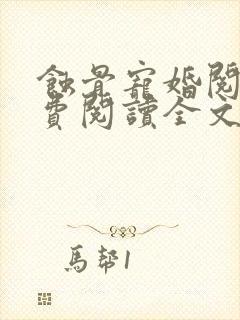 蝕骨寵婚閱
費閱讀全文
馬幫1